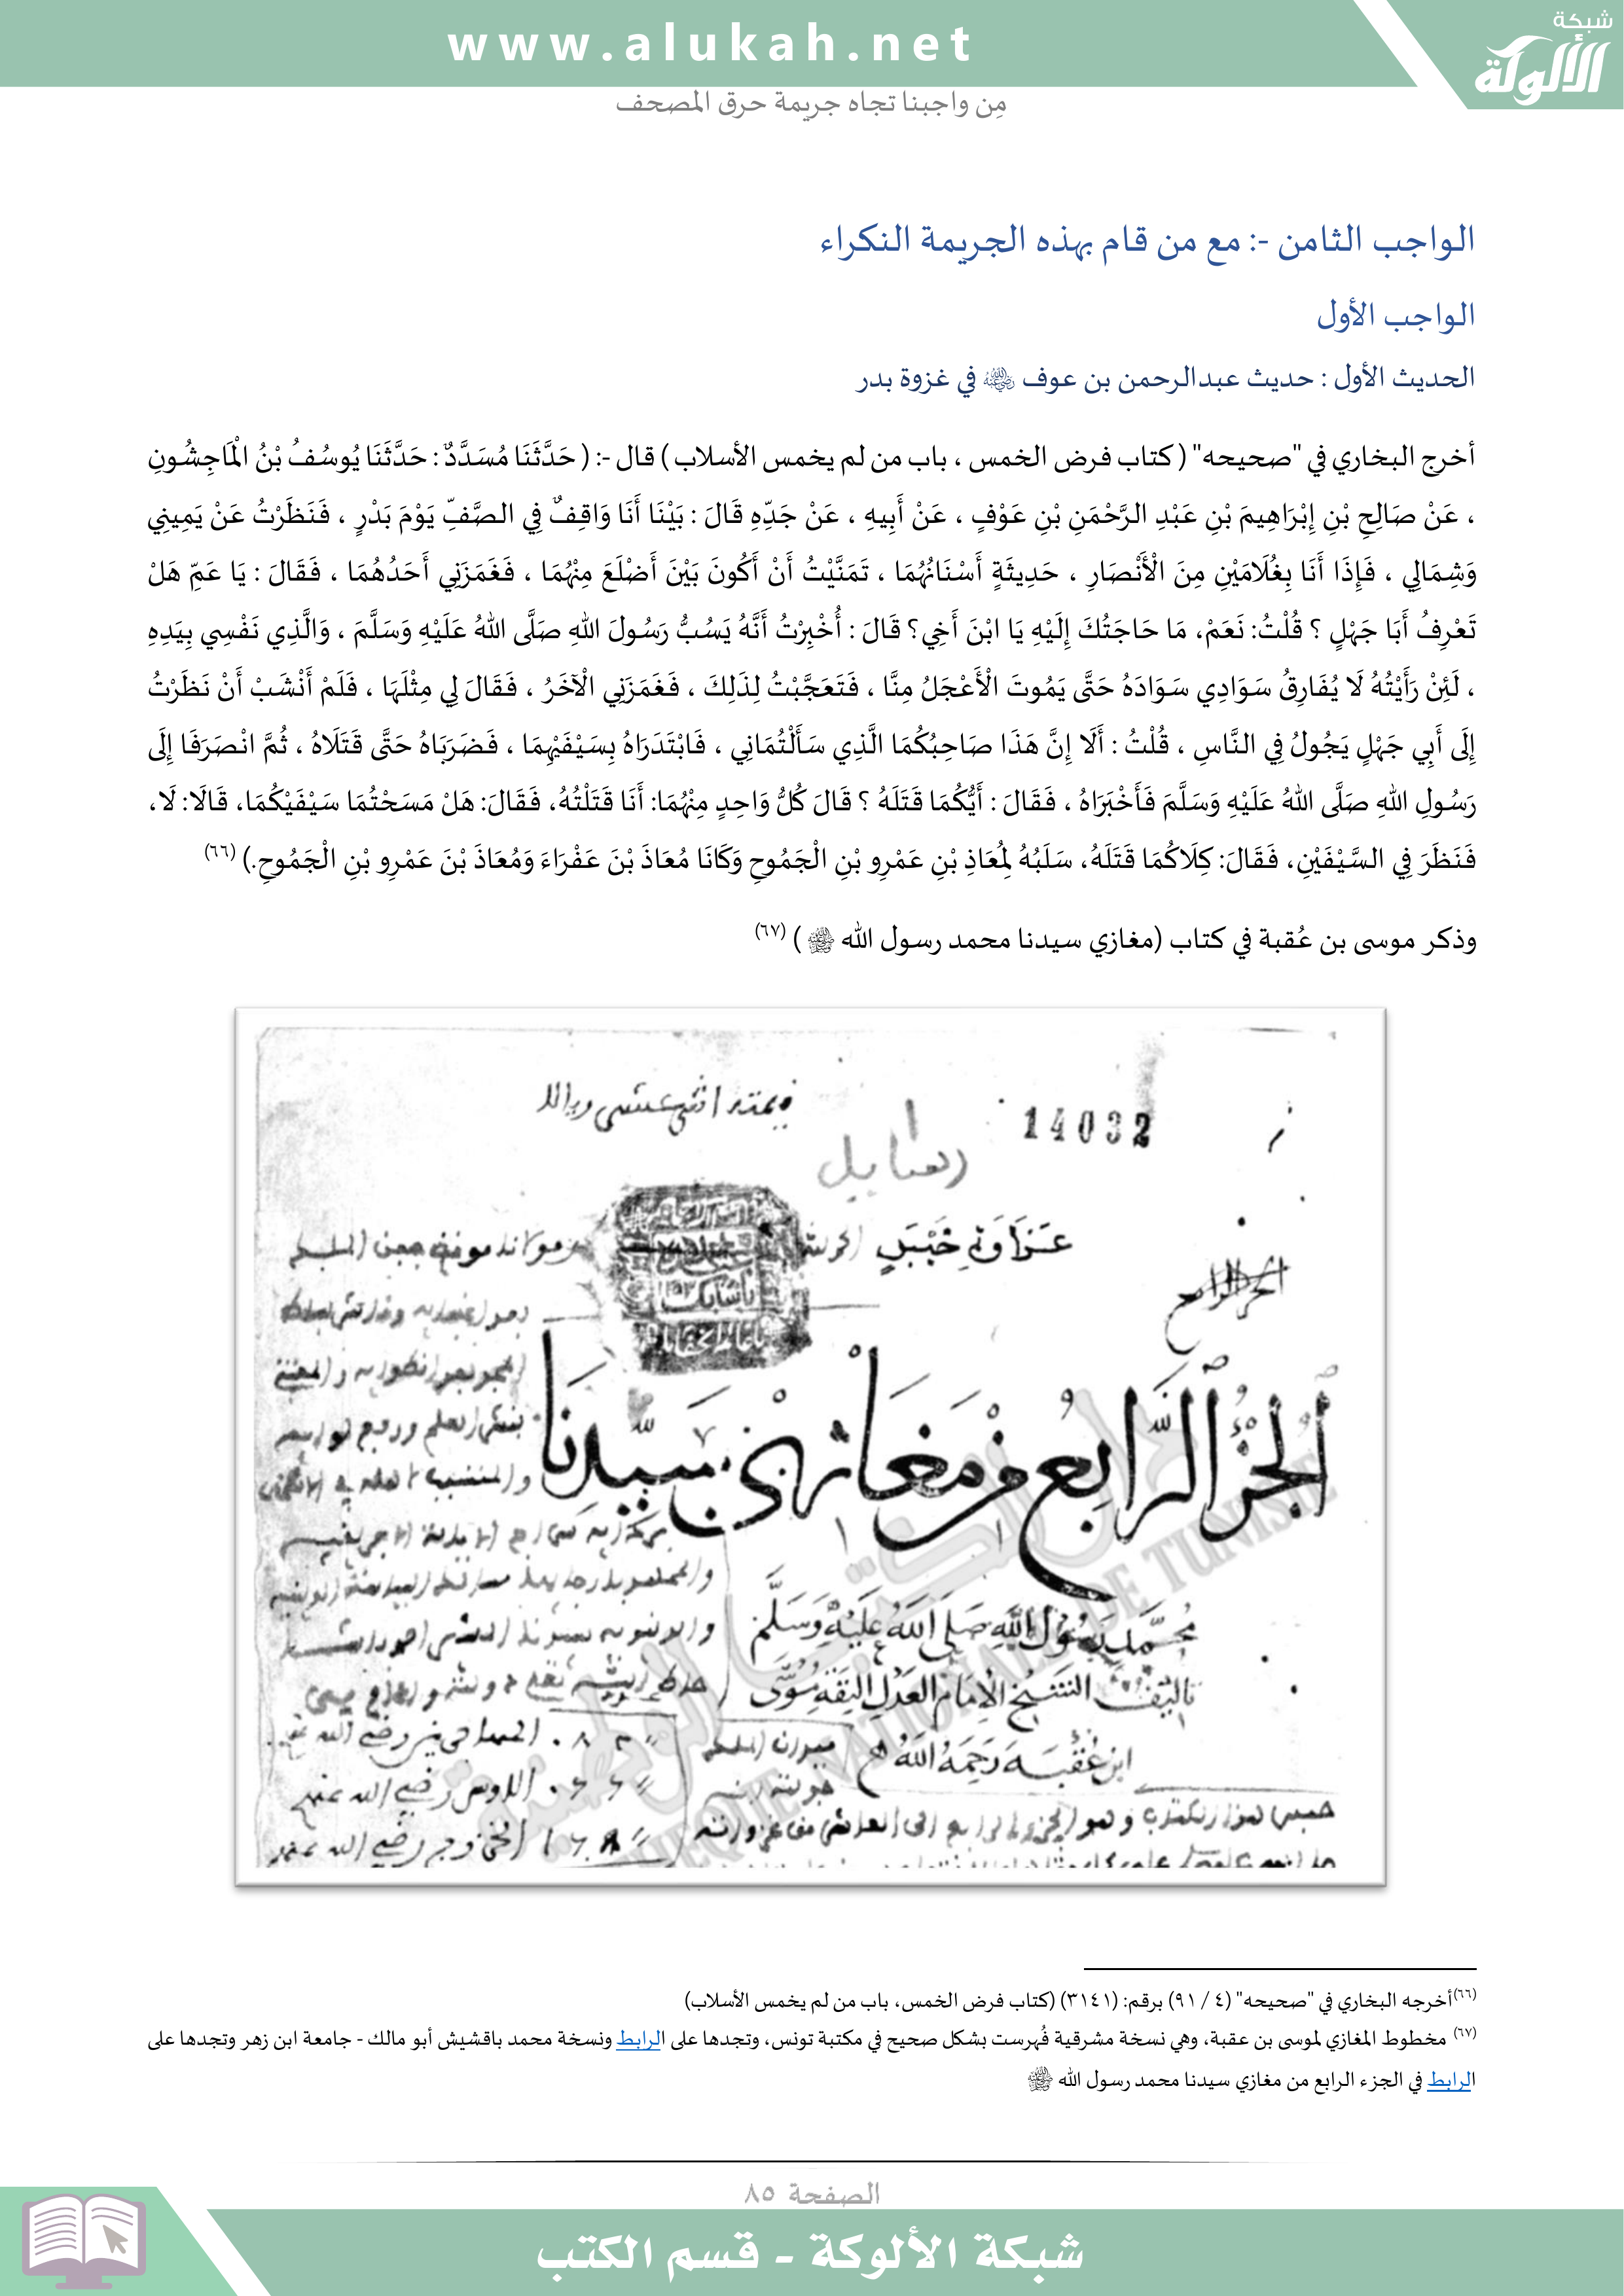 www.alukah.net
شبكة
الألوكة
مِن واجبنا تجاه جريمة حرق المصحف
الواجب الثامن -: مع من قام بهذه الجريمة النكراء
الواجب الأول
الحديث الأول : حديث عبدالرحمن بن عوف رضي الله عنه في غزوة بدر
أخرج البخاري في "صحيحه" ( كتاب فرض الخمس ، باب من لم يخمس الأسلاب ) قال -: ( حَدَّثَنَا مُسَدَّدٌ : حَدَّثَنَا يُوسُفُ بْنُ الْمَاجِشُونِ
، عَنْ صَالِحِ بْنِ إِبْرَاهِيمَ بْنِ عَبْدِ الرَّحْمَنِ بْنِ عَوْفٍ ، عَنْ أَبِيهِ ، عَنْ جَدِّهِ قَالَ : بَيْنَا أَنَا وَاقِفٌ فِي الصَّفِّ يَوْمَ بَدْرٍ ، فَنَظَرْتُ عَنْ يَمِينِي
وَشِمَالِي ، فَإِذَا أَنَا بِغُلَامَيْنِ مِنَ الْأَنْصَارِ ، حَدِيثَةٍ أَسْنَانُهُمَا ، تَمَنَّيْتُ أَنْ أَكُونَ بَيْنَ أَضْلَعَ مِنْهُمَا ، فَغَمَزَنِي أَحَدُهُمَا ، فَقَالَ : يَا عَمِّ هَلْ
تَعْرِفُ أَبَا جَهْلٍ ؟ قُلْتُ: نَعَمْ، مَا حَاجَتُكَ إِلَيْهِ يَا ابْنَ أَخِي؟ قَالَ : أُخْبِرْتُ أَنَّهُ يَسُبُّ رَسُولَ اللهِ صَلَّى اللهُ عَلَيْهِ وَسَلَّمَ ، وَالَّذِي نَفْسِي بِيَدِهِ
، لَئِنْ رَأَيْتُهُ لَا يُفَارِقُ سَوَادِي سَوَادَهُ حَتَّى يَمُوتَ الْأَعْجَلُ مِنَّا ، فَتَعَجَّبْتُ لِذَلِكَ ، فَغَمَزَنِي الْآخَرُ ، فَقَالَ لِي مِثْلَهَا ، فَلَمْ أَنْشَبْ أَنْ نَظَرْتُ
إِلَى أَبِي جَهْلٍ يَجُولُ فِي النَّاسِ ، قُلْتُ : أَلَا إِنَّ هَذَا صَاحِبُكُمَا الَّذِي سَأَلْتُمَانِي ، فَابْتَدَرَاهُ بِسَيْفَيْهِمَا ، فَضَرَبَاهُ حَتَّى قَتَلَاهُ ، ثُمَّ انْصَرَفَا إِلَى
رَسُولِ اللهِ صَلَّى اللهُ عَلَيْهِ وَسَلَّمَ فَأَخْبَرَاهُ ، فَقَالَ : أَيُّكُمَا قَتَلَهُ ؟ قَالَ كُلُّ وَاحِدٍ مِنْهُمَا: أَنَا قَتَلْتُهُ، فَقَالَ: هَلْ مَسَحْتُمَا سَيْفَيْكُمَا، قَالَا: لَا،
فَنَظَرَ فِي السَّيْفَيْنِ، فَقَالَ: كِلَاكُمَا قَتَلَهُ، سَلَبُهُ لِمُعَاذِ بْنِ عَمْرِو بْنِ الْجَمُوحِ وَكَانَا مُعَاذَ بْنَ عَفْرَاءَ وَمُعَاذَ بْنَ عَمْرِو بْنِ الْجَمُوحِ.) (٦٦)
وذكر موسى بن عُقبة في كتاب (مغازي سيدنا محمد رسول الله ﷺ ) (٦٧)
14032
رسايل
الجزء الرابع من مغازي سيدنا
محمد رسول الله صلى الله عليه وسلم
تاليف الشيخ الإمام العدل الثقة موسى
ابن عقبة رحمه الله
(٦٦)أخرجه البخاري في "صحيحه" (٤ / ٩١) برقم: (٣١٤١) (كتاب فرض الخمس، باب من لم يخمس الأسلاب)
(٦٧) مخطوط المغازي لموسى بن عقبة، وهي نسخة مشرقية فُهرست بشكل صحيح في مكتبة تونس، وتجدها على الرابط ونسخة محمد باقشيش أبو مالك - جامعة ابن زهر وتجدها على
الرابط في الجزء الرابع من مغازي سيدنا محمد رسول الله ﷺ
الصفحة ٨٥
شبكة الألوكة - قسم الكتب